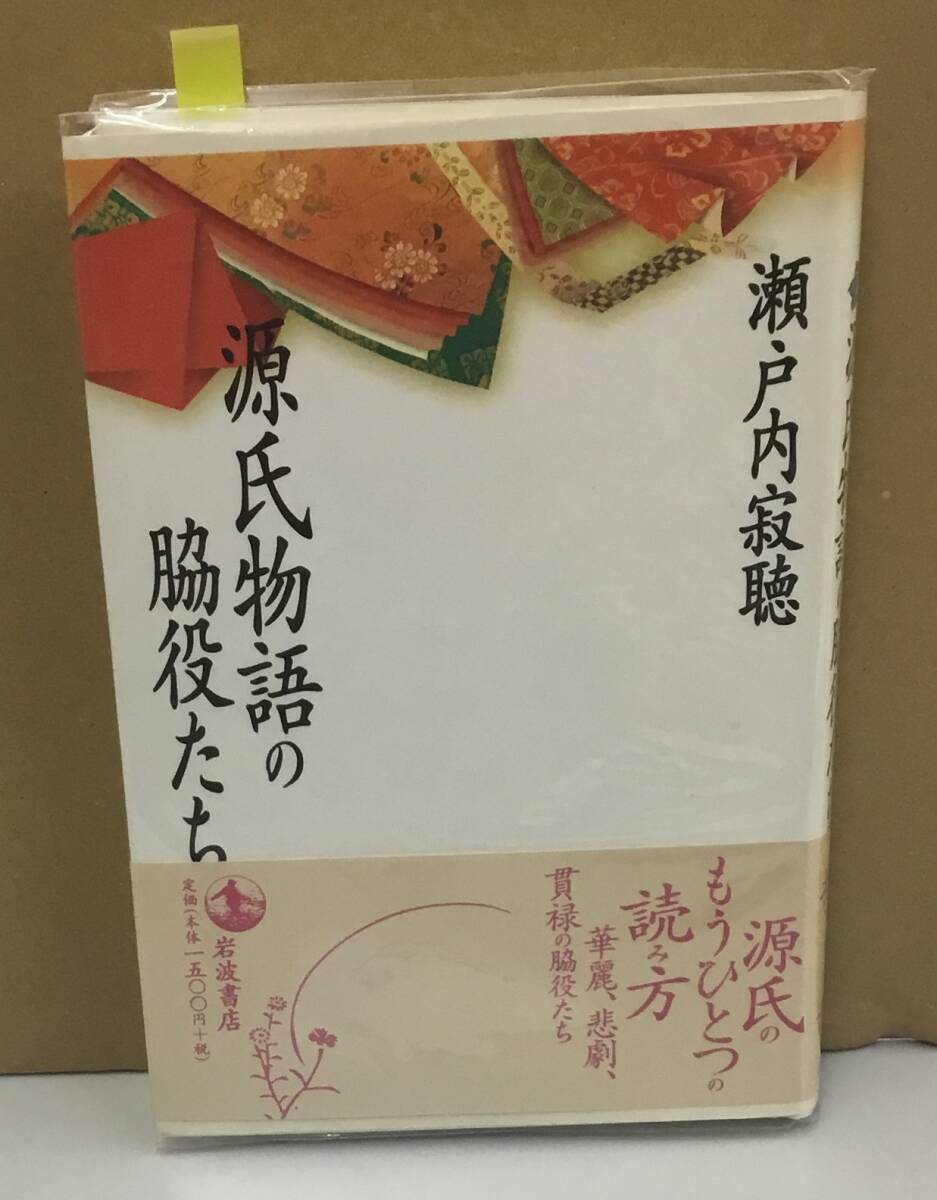 瀬戸内寂聴
源氏物語の
脇役たち
源氏の
もうひとつの
読み方
華麗、悲劇、
貫禄の脇役たち
岩波書店
定価(本体一五〇〇円+税)